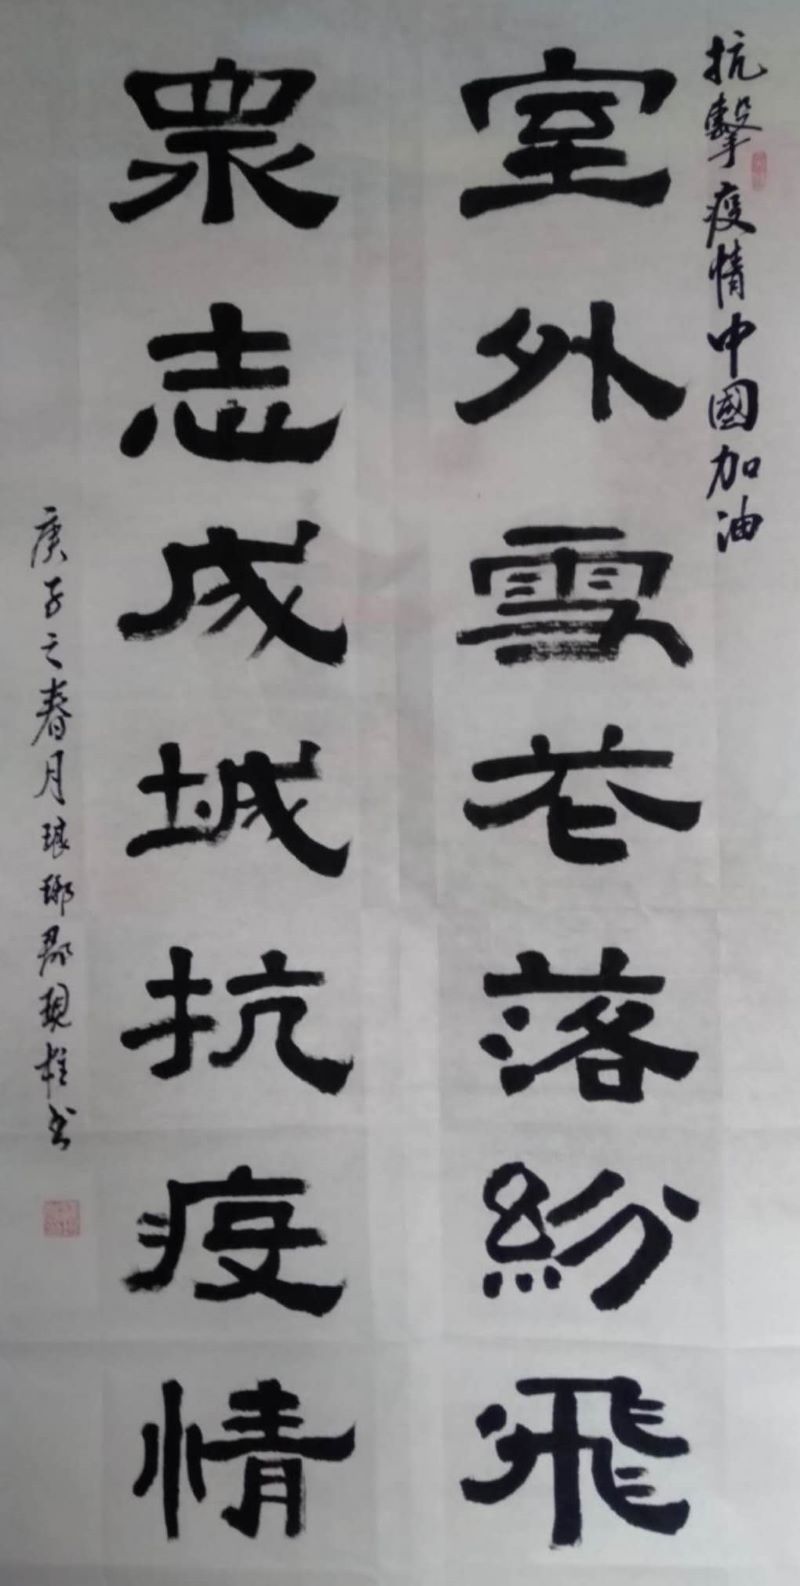 抗擊疫情中國加油
室外雪花落紛飛
眾志成城抗疫情
庚子之春月琅琊郡現桂书